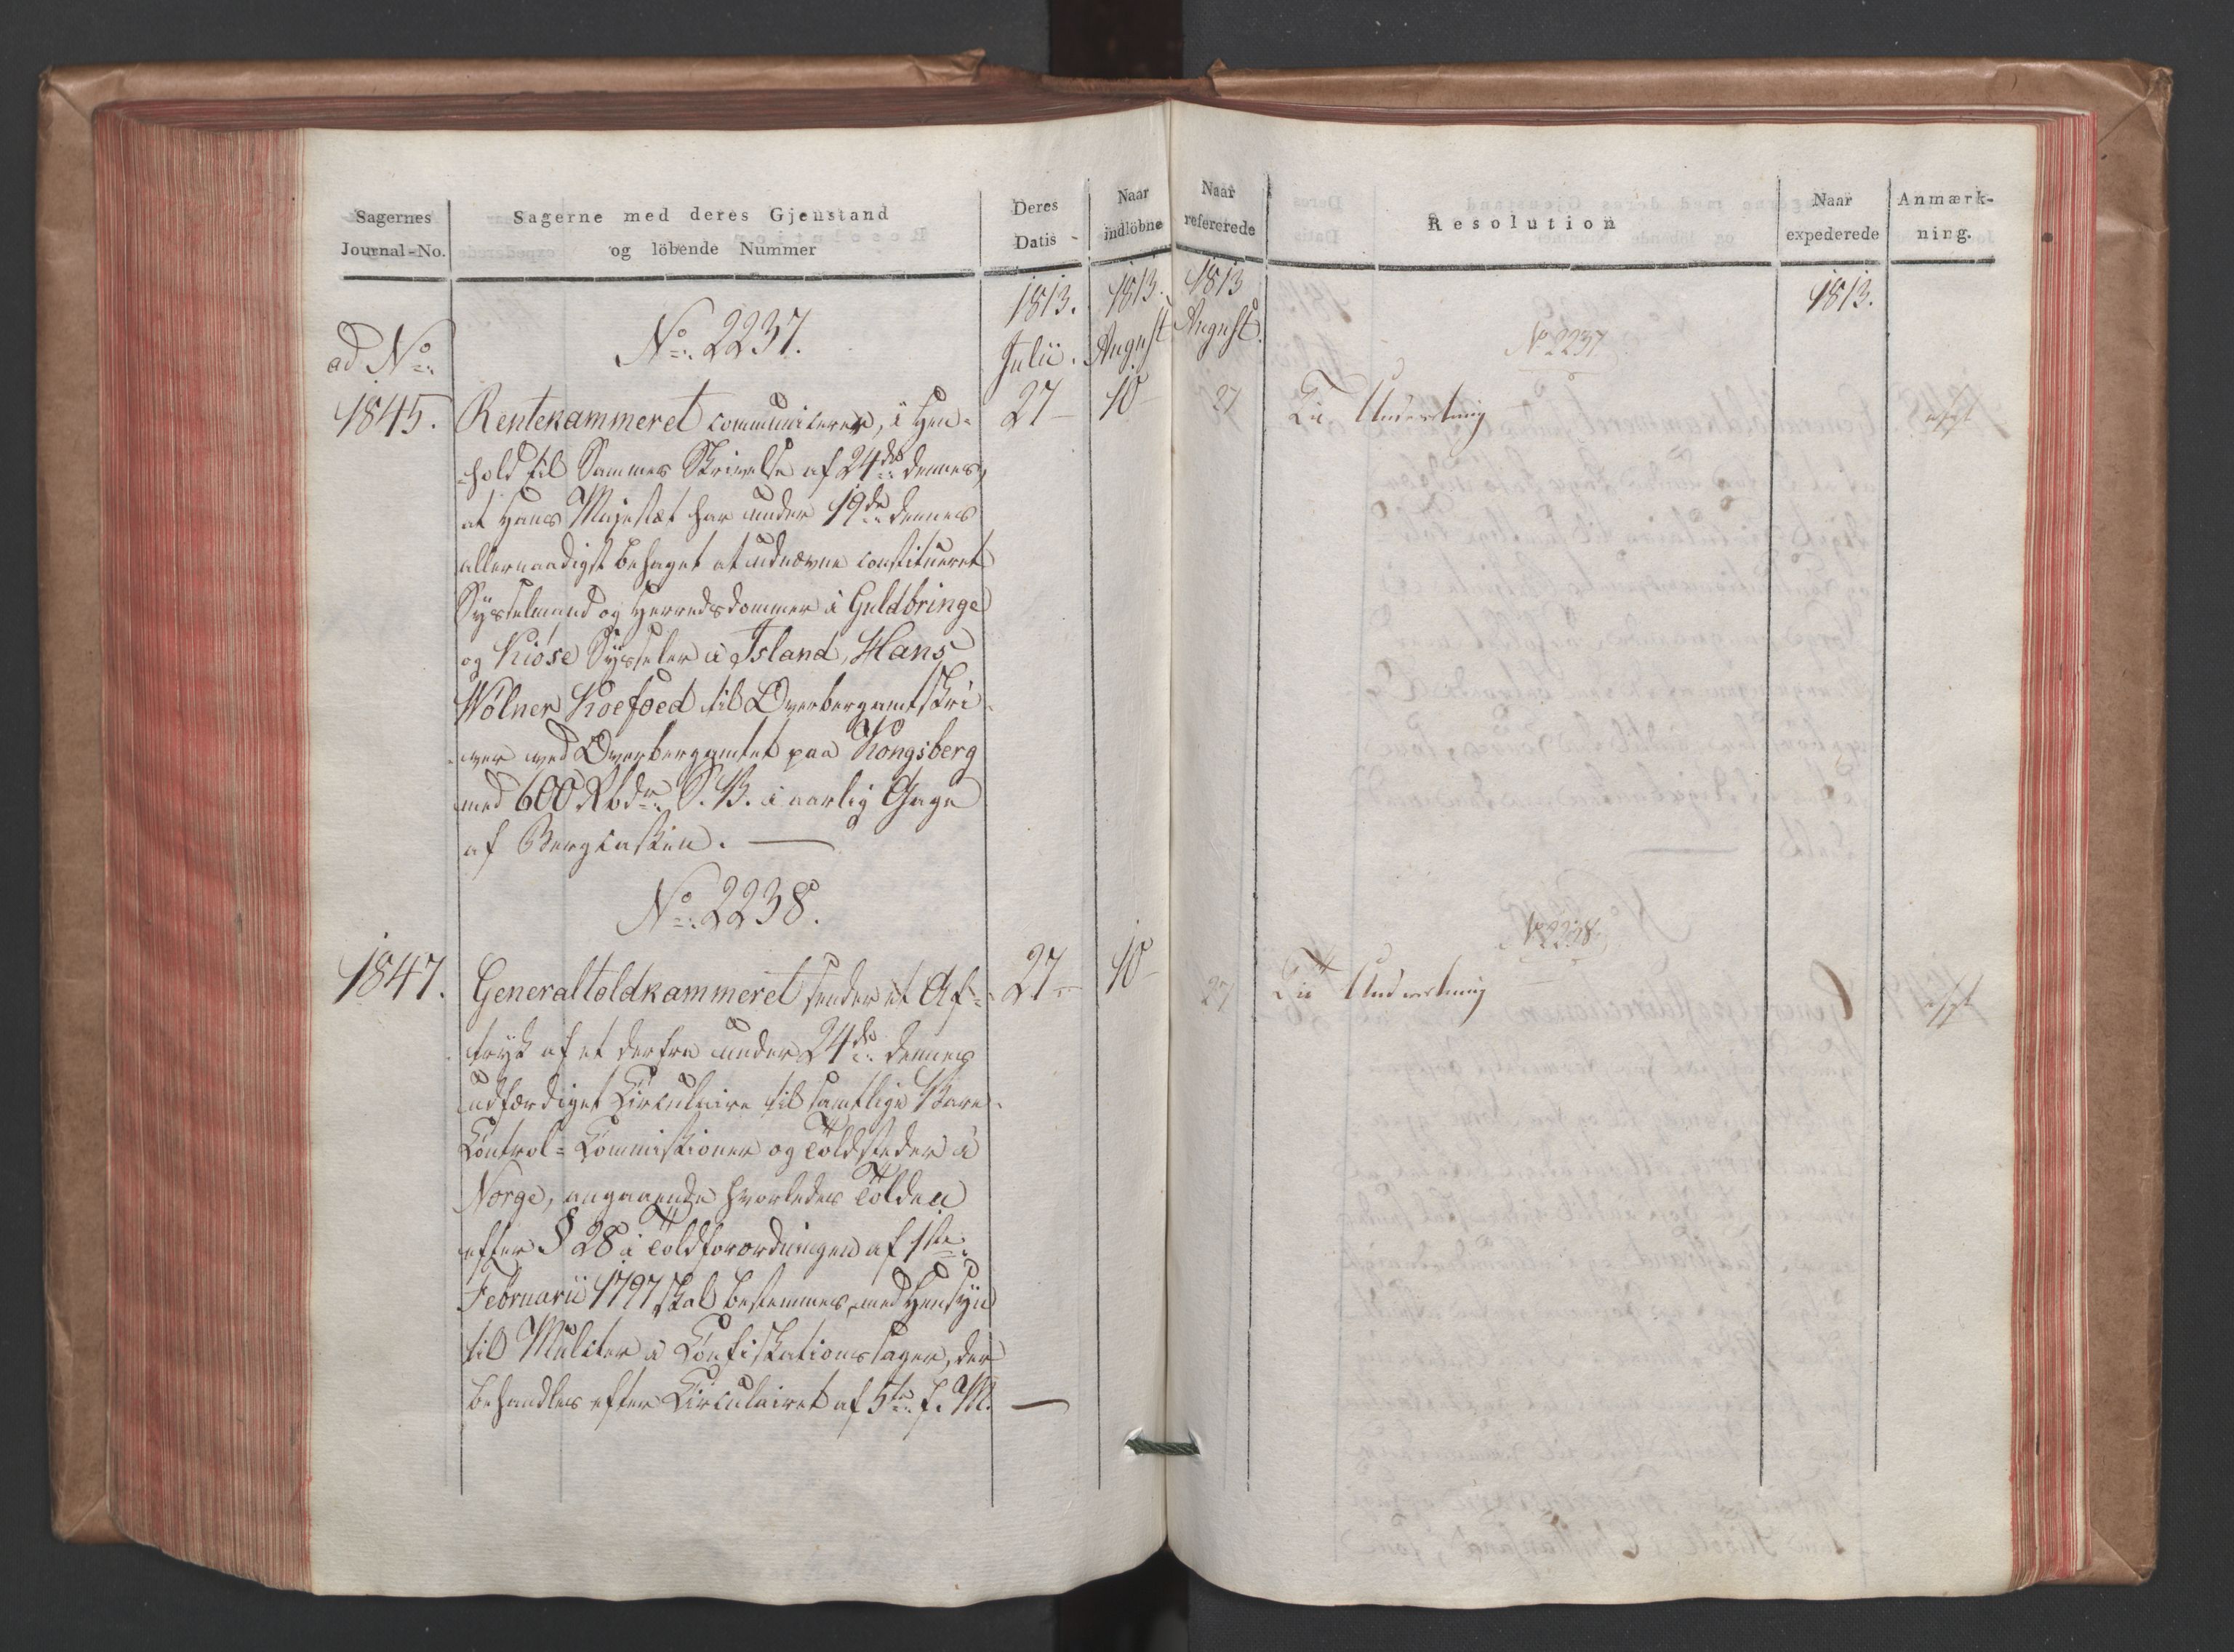 Sagernes
Journal-No.
Sagerne med deres Gjenstand
og löbende Nummer
Deres
Datis
Naar
indlöbne
1813.
Julii.
1813.
August
No. 2237.
ad No.
1845.
Rentekammeret communicerer, i Hen-
hold til Sammes Skrivelse af 24de dennes,
at Hans Majestæt har under 19de dennes
allernaadigst behaget at udnævne constitueret
Sysselmand og Herredsdommer i Guldbringe
og Kiose Sysseler i Island, Hans
Wølner Koefoed til Overbergamtskri-
ver ved Overbergamtet paa Kongsberg
med 600 Rbdr. S. V. i aarlig Gage
af Bergkassen.
27
10
No. 2238.
1847.
Generaltoldkammeret sender et Af-
tryk af et derfra under 24de dennes
udfærdiget Circulaire til samtlige Vare-
Control-Commissioner og Toldsteder i
Norge, angaaende hvorledes Tolden
efter § 28 i Toldforordningen af 1ste
Februarii 1797 skal bestemmes, med Hensyn
til Mulcter i Confiskationssager, der
behandles efter Circulairet af 5te f. M.
27
10
Naar
refererede
Resolution
Naar
expederede
Anmærk-
ning.
1813
August.
1813.
No 2237
27
Til Underretning
No 2238
27
Til Underretning